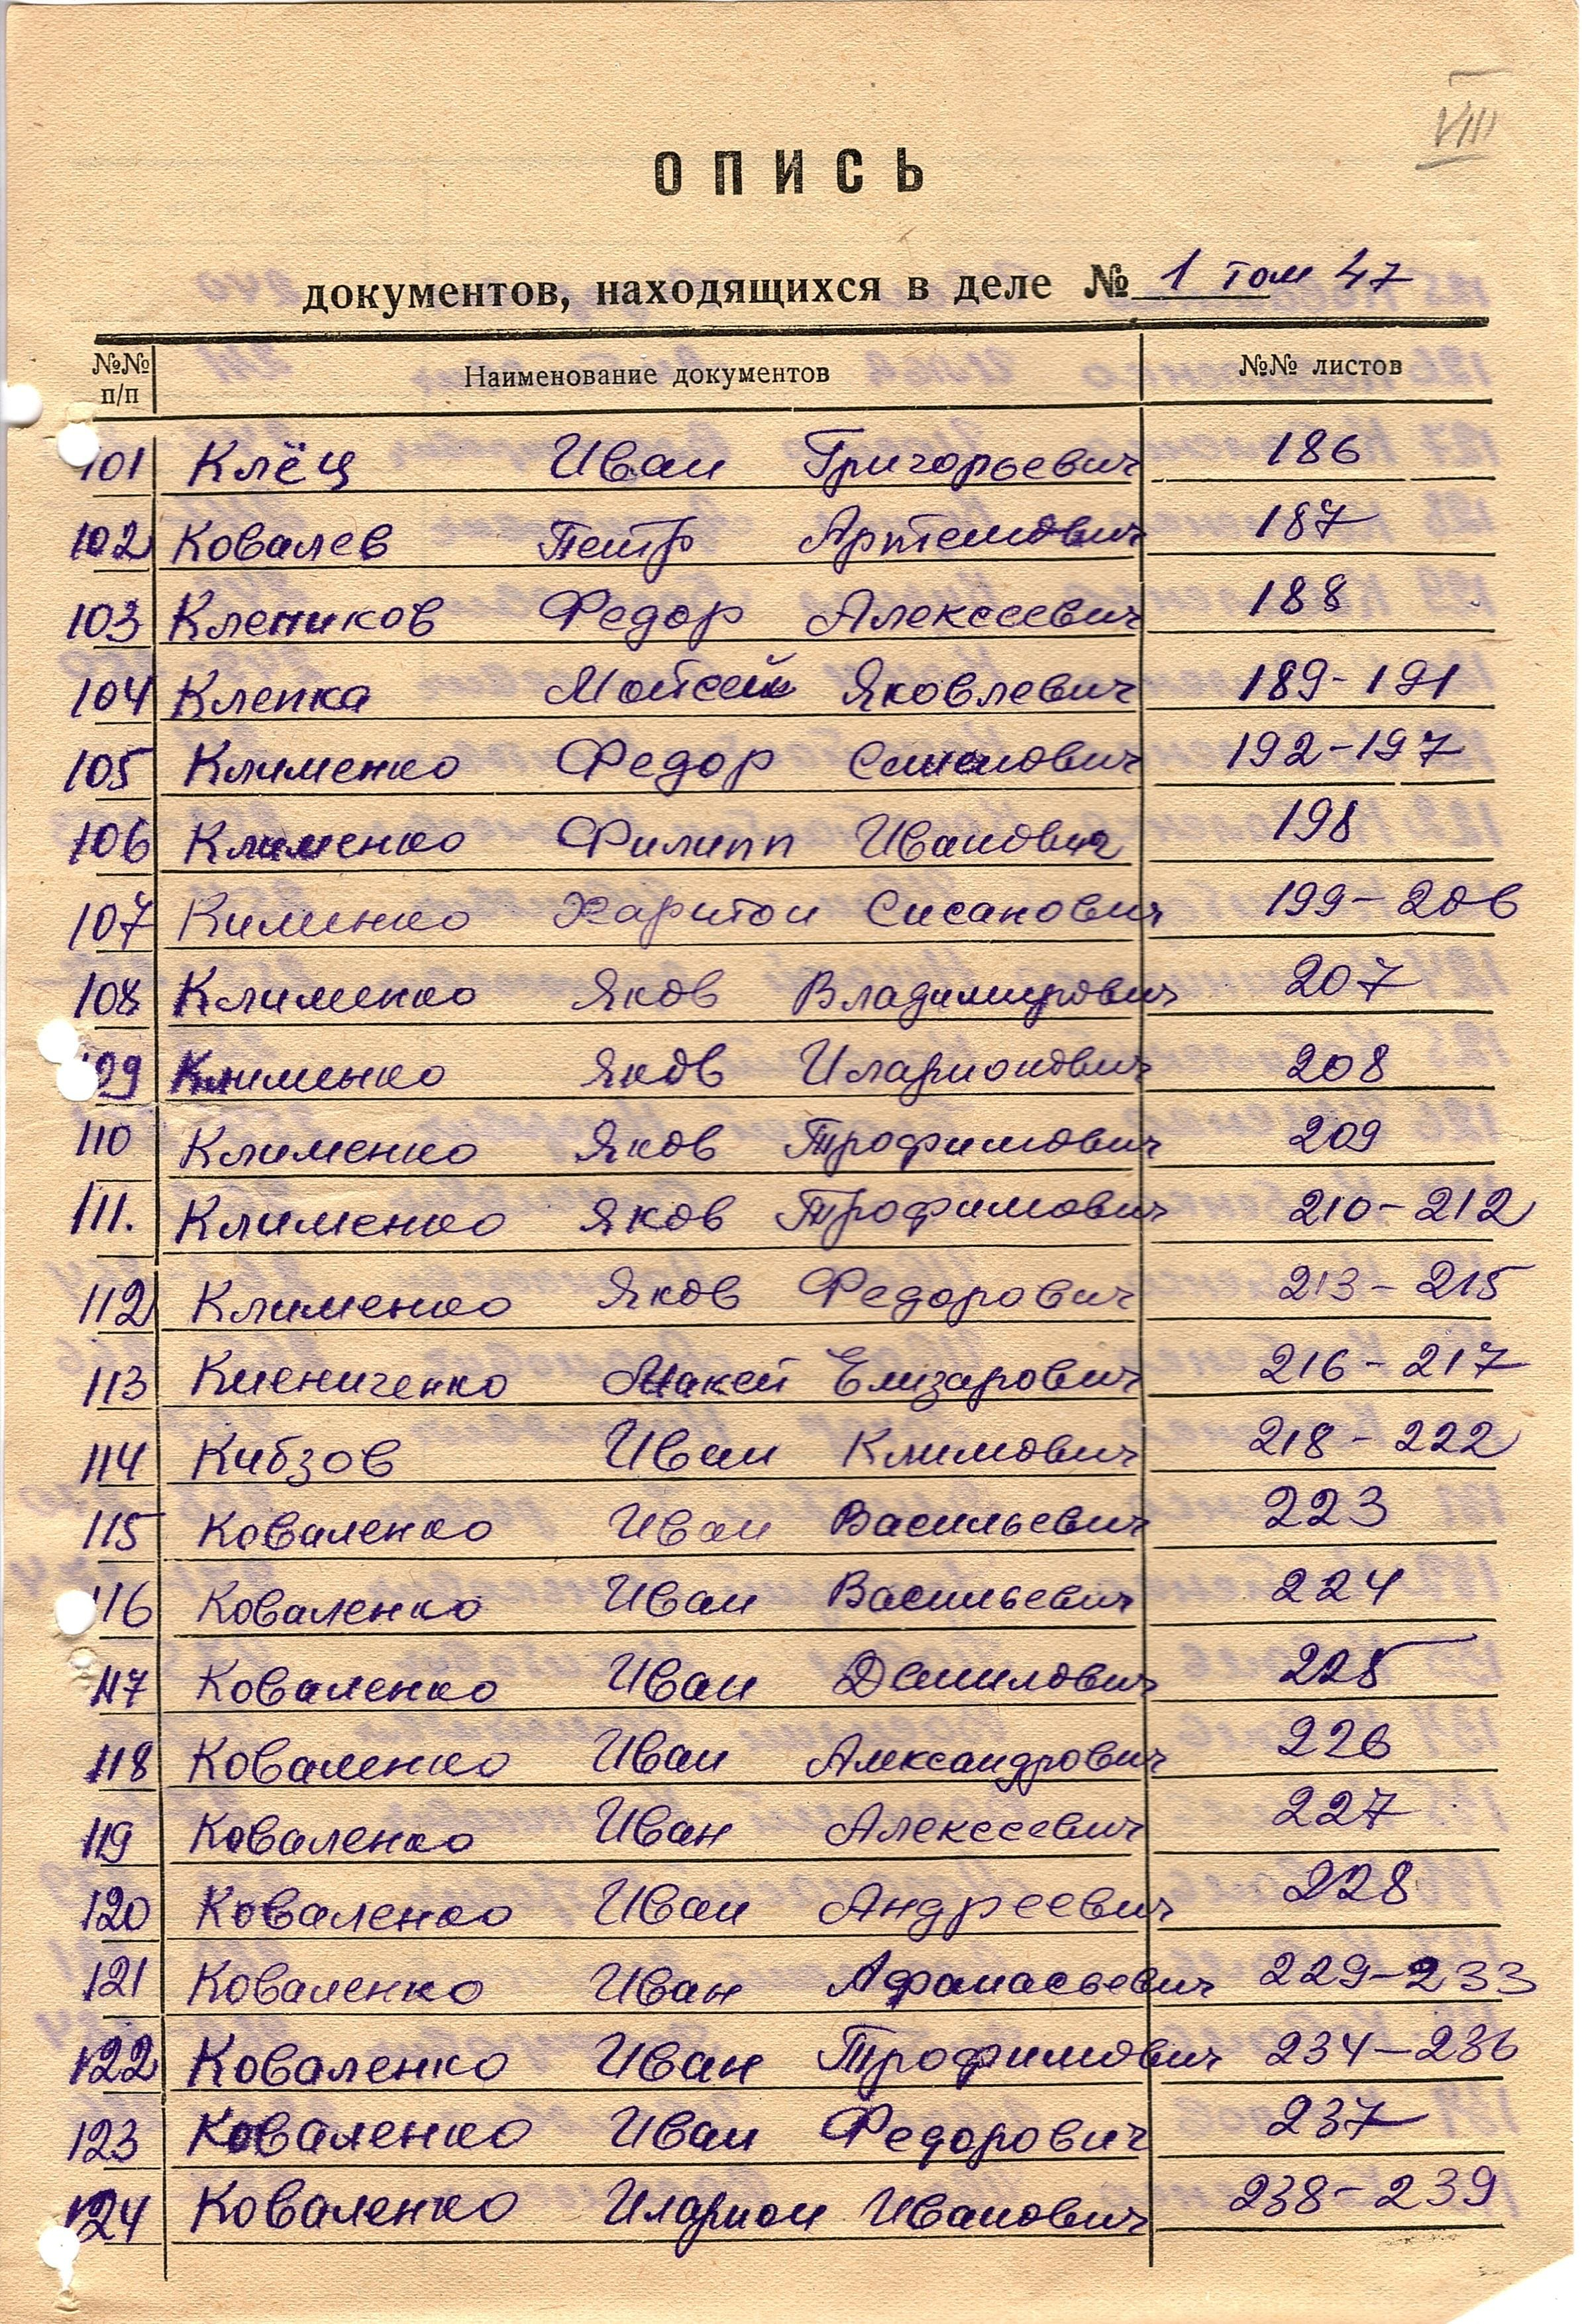 VIII
ОПИСЬ
документов, находящихся в деле № 1 том 47
№№ п/п Наименование документов №№ листов
101 Клёц Иван Григорьевич 186
102 Ковалев Петр Артемович 187
103 Клепиков Федор Алексеевич 188
104 Клепка Мойсей Яковлевич 189-191
105 Клименко Федор Семенович 192-197
106 Клименко Филипп Иванович 198
107 Кименко Харитон Сисанович 199-206
108 Клименко Яков Владимирович 207
109 Клименко Яков Иларионович 208
110 Клименко Яков Трофимович 209
111. Клименко Яков Трофимович 210-212
112 Клименко Яков Федорович 213-215
113 Киениченко Елизарович 216-217
114 Кибзов Иван Климович 218-222
115 Коваленко Иван Васильевич 223
116 Коваленко Иван Васильевич 224
117 Коваленко Иван Данилович 225
118 Коваленко Иван Александрович 226
119 Коваленко Иван Алексеевич 227
120 Коваленко Иван Андреевич 228
121 Коваленко Иван Афанасьевич 229-233
122 Коваленко Иван Трофимович 234-236
123 Коваленко Иван Федорович 237
124 Коваленко Иларион Иванович 238-239